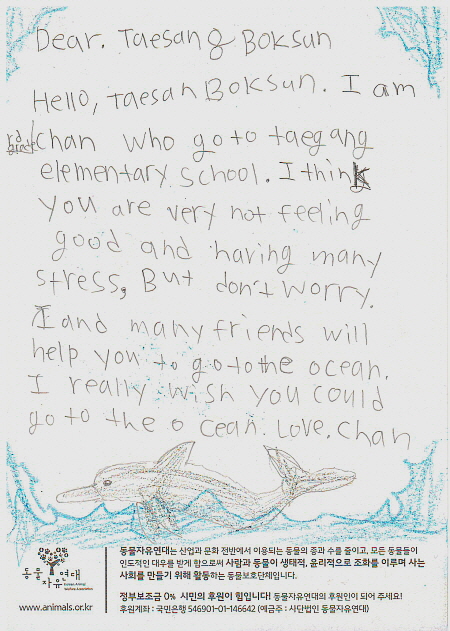 Dear. Taesang & Boksun
Hello, Taesan Boksun. I am
rd grade Chan who go to taegang
elementary school. I think
you are very not feeling
good and having many
stress, But don't worry.
I and many friends will
help you to go to the ocean.
I really wish you could
go to the ocean. Love. Chan
동물자유연대
Korean Animal Welfare Association
www.animals.or.kr
동물자유연대는 산업과 문화 전반에서 이용되는 동물의 종과 수를 줄이고, 모든 동물들이
인도적인 대우를 받게 함으로써 사람과 동물이 생태적, 윤리적으로 조화를 이루며 사는
사회를 만들기 위해 활동하는 동물보호단체입니다.
정부보조금 0% 시민의 후원이 힘입니다! 동물자유연대의 후원인이 되어 주세요!
후원계좌 : 국민은행 546901-01-146642 (예금주 : 사단법인 동물자유연대)